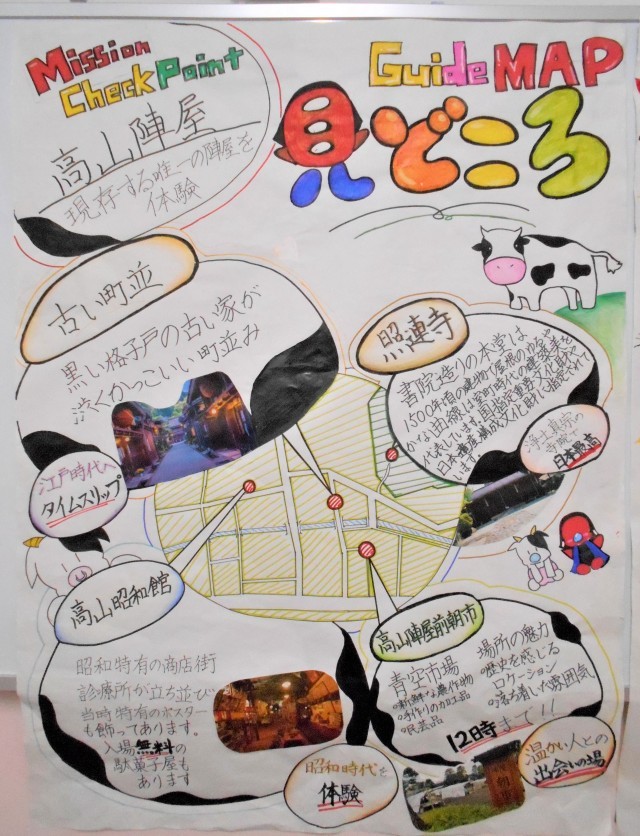 Mission
Check Point
Guide MAP
見どころ
高山陣屋
現存する唯一の陣屋を
体験
古い町並
黒い格子戸の古い家が
渋くかっこいい町並み
江戸時代へ
タイムスリップ
照蓮寺
書院造りの本堂は
1500年頃の建物で屋根の
かな曲線は室町時代の建築美を
代表しています。国指定重要文化財や
日本遺産構成文化財に指定されて
います。
浄土真宗の
寺院で
日本最古
高山昭和館
昭和特有の商店街
診療所が立ち並び
当時特有のポスター
も飾ってあります。
入場無料の
駄菓子屋も
あります
昭和時代を
体験
高山陣屋前朝市
青空市場
新鮮な農作物
手作りの加工品
民芸品
場所の魅力
歴史を感じる
ロケーション
落ち着いた雰囲気
12時まで!!
温かい人との
出会いの場